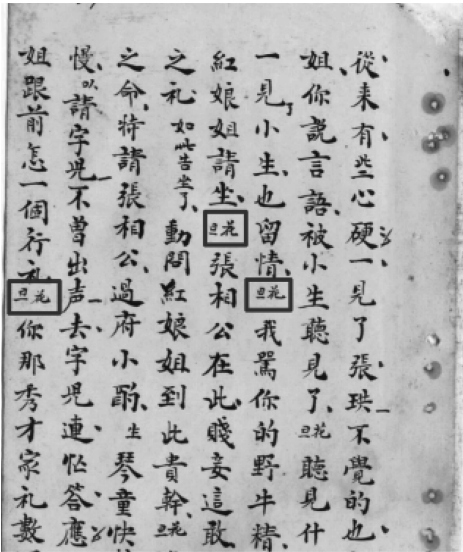 從来有些心硬一見了張珙不覺的也
姐你説言語被小生聽見了旦花聽見什
一見了小生也留情旦花我罵你的野牛精
紅娘姐請坐旦花張相公在此賤妾這敢
之礼如此告坐了動問紅娘姐到此貴幹旦花
之命特請張相公過府小酌生琴童快
慢以請字児不曾出声去字児連忙答應
姐跟前怎一個行礼旦花你那秀才家礼數